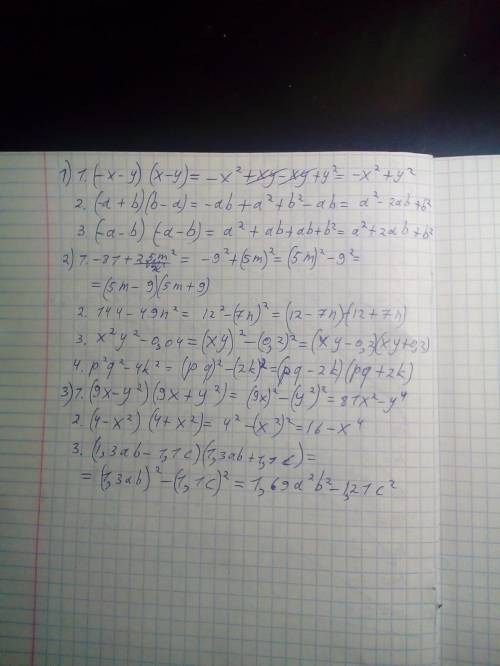 1) 1. (-x-y) (x-y) = -x² +xy-xy+y² = -x²+y²
2. (-a+b)(b-a) = -ab+a²+b²-ab = a²-2ab+b²
3. (-a-b) (-a-b) = a²+ab+ab+b² = a²+2ab+b²
2) 1. -81+25m² = -9²+(5m)² = (5m)²-9² =
= (5m-9)(5m+9)
2. 144-49n² = 12²-(7n)² = (12-7n)(12+7n)
3. x²y²-0,04 = (xy)²-(0,2)² = (xy-0,2)(xy+0,2)
4. p²q²-4k² = (pq)²-(2k)² = (pq-2k)(pq+2k)
3) 1. (9x-y²)(9x+y²) = (9x)²-(y²)² = 81x²-y⁴
2. (4-x²) (4+x²) = 4²-(x²)² = 16-x⁴
3. (1,3ab-1,1c)(1,3ab+1,1c) =
= (1,3ab)²-(1,1c)² = 1,69a²b²-1,21c²